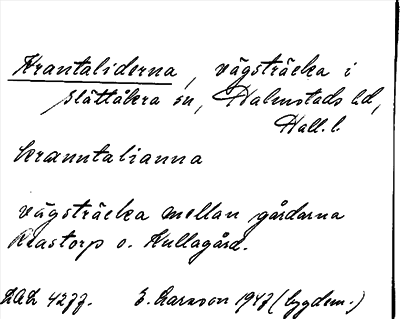 Krantaliderna, vägsträcka i
Slättåkra sn, Halmstads hd,
Hall. l.
kranntalianna
vägsträcka mellan gårdarna
Klastorp o. Kullagård.
LAL 4277. E. Larsson 1947 (bygdem.)